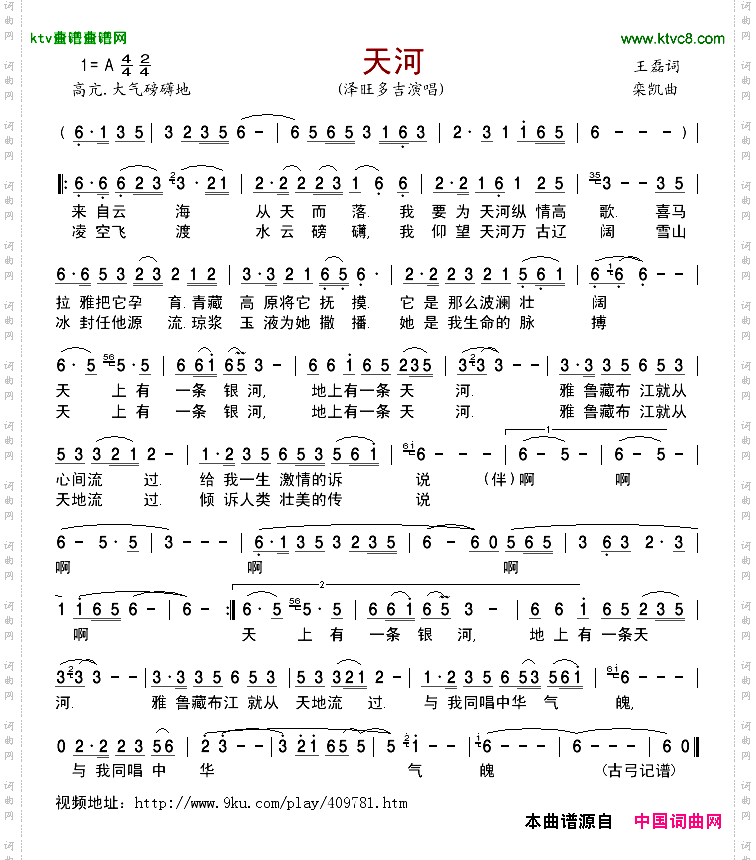 ktv曲谱曲谱网
www.ktvc8.com
1=A 4/4 2/4
天河
王磊词
高亢.大气磅礴地
(泽旺多吉演唱)
栾凯曲
( 6·135 | 3235 6- | 65653163 | 2·3 1165 | 6 - - ) |
6·6 623 3·21 | 2·2 223 1 6 6 | 2·2 161 2 25 | 3 - - 35 |
来自云 海 从天而落.我 要为天河纵情高 歌. 喜马
凌空飞 渡 水云磅礴,我 仰望天河万古辽 阔 雪山
6·6 553 23 2 112 | 3·3 221 65 6· | 2·2 2321 561 | 6 6 6 - - |
拉雅把它孕 育.青藏 高原将它抚摸. 它是那么波澜壮 阔
冰封任他源 流.琼浆 玉液为她撒播. 她是我生命的脉 搏
6·5 5·5 | 661 65 3 - | 661 665 235 | 3 3 3 - - | 3·3 235 653 |
天 上有 一条 银河, 地上有一条天 河. 雅鲁藏布江就从
天 上有 一条 银河, 地上有一条天 河. 雅鲁藏布江就从
53 321 2 - | 1·235 653 561 | 6 - - - | 6 - 5 - | 6 - 5 - |
1
心间流 过. 给我一生激情的诉 说 (伴)啊 啊
天地流 过. 倾诉人类壮美的传 说
6 - 5·5 | 3 - - - | 6·135 3235 | 6 - 60 565 | 3 63 2·3 |
啊 啊 啊
1 165 6 - | 6 - :| 6·5 5·5 | 661 65 3 - | 661 65 235 |
2
啊 天 上有 一条 银河, 地上有一条天
3 3 3 - - | 3·3 235 653 | 53 321 2 - | 1·235 653 561 | 6 - - - |
河. 雅鲁藏布江就从 天地流 过. 与我同唱中华气 魄,
0 2·2 223 56 | 2 3 - - | 3 21 655 | 5 2 - - | 6 - - - | 6 - - - | 60 ||
与我同唱中 华 气 魄 (古弓记谱)
视频地址: http://www.9ku.com/play/409781.htm
本曲谱源自 中国词曲网
词曲网